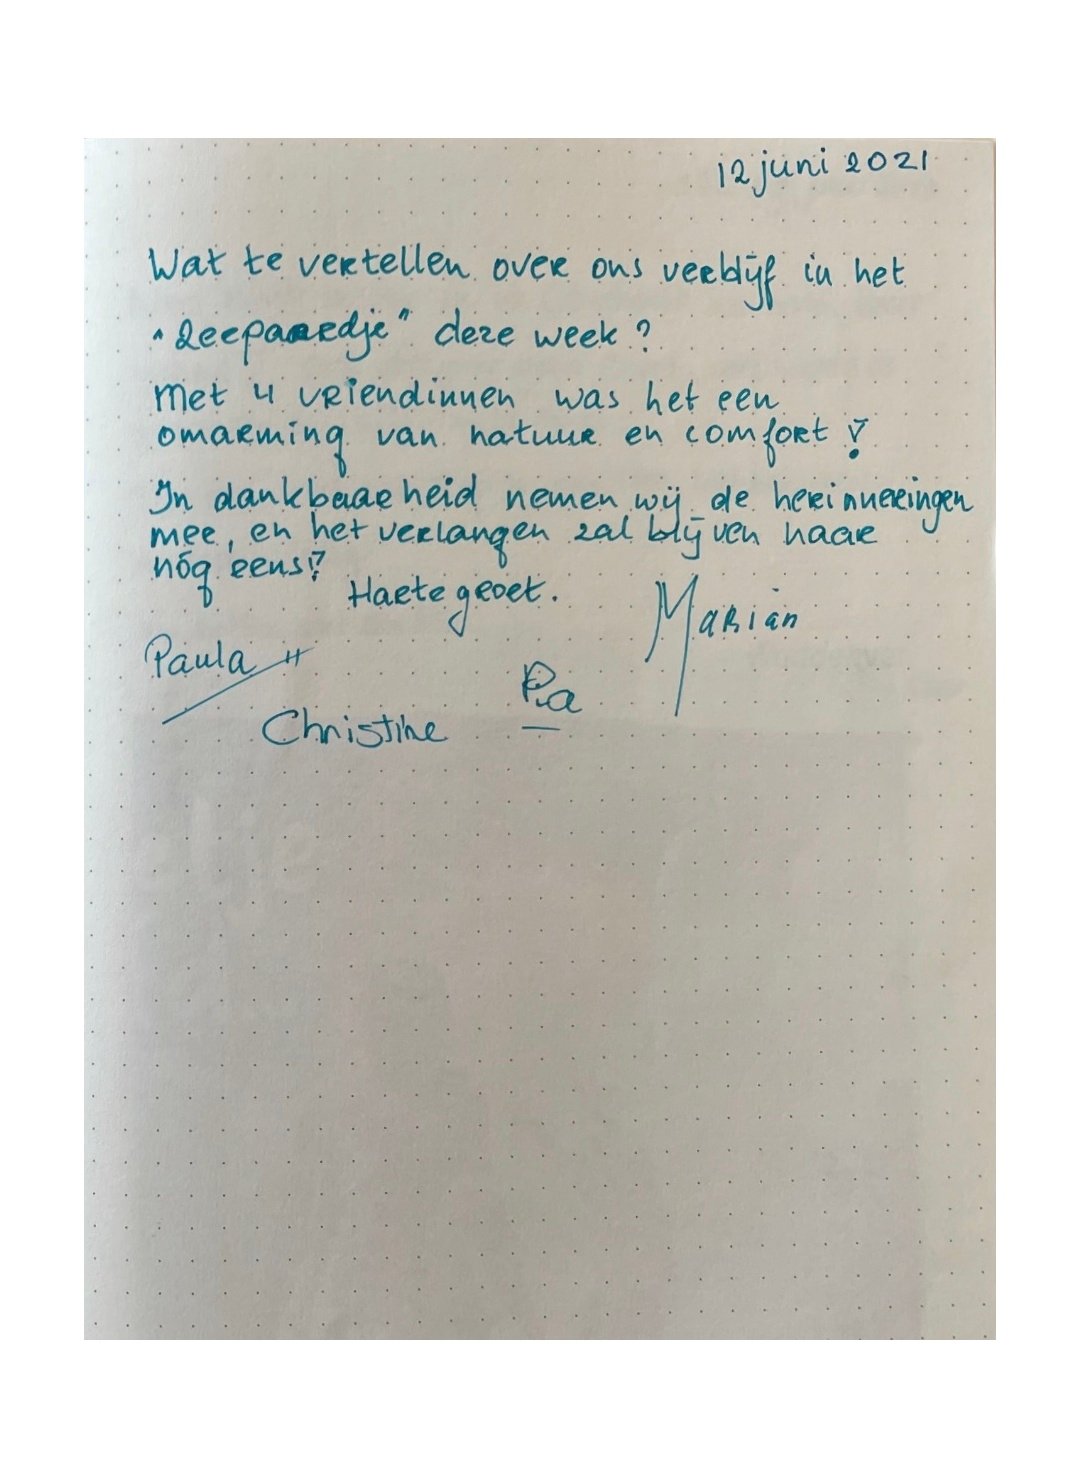 12 juni 2021
Wat te vertellen over ons verblijf in het
"Zeepaardje" deze week?
Met 4 vriendinnen was het een
omarming van natuur en comfort!
In dankbaarheid nemen wij de herinneringen
mee, en het verlangen zal blijven naar
nóg eens!?
Harte groet.
Marian
Paula
Pia
Christine